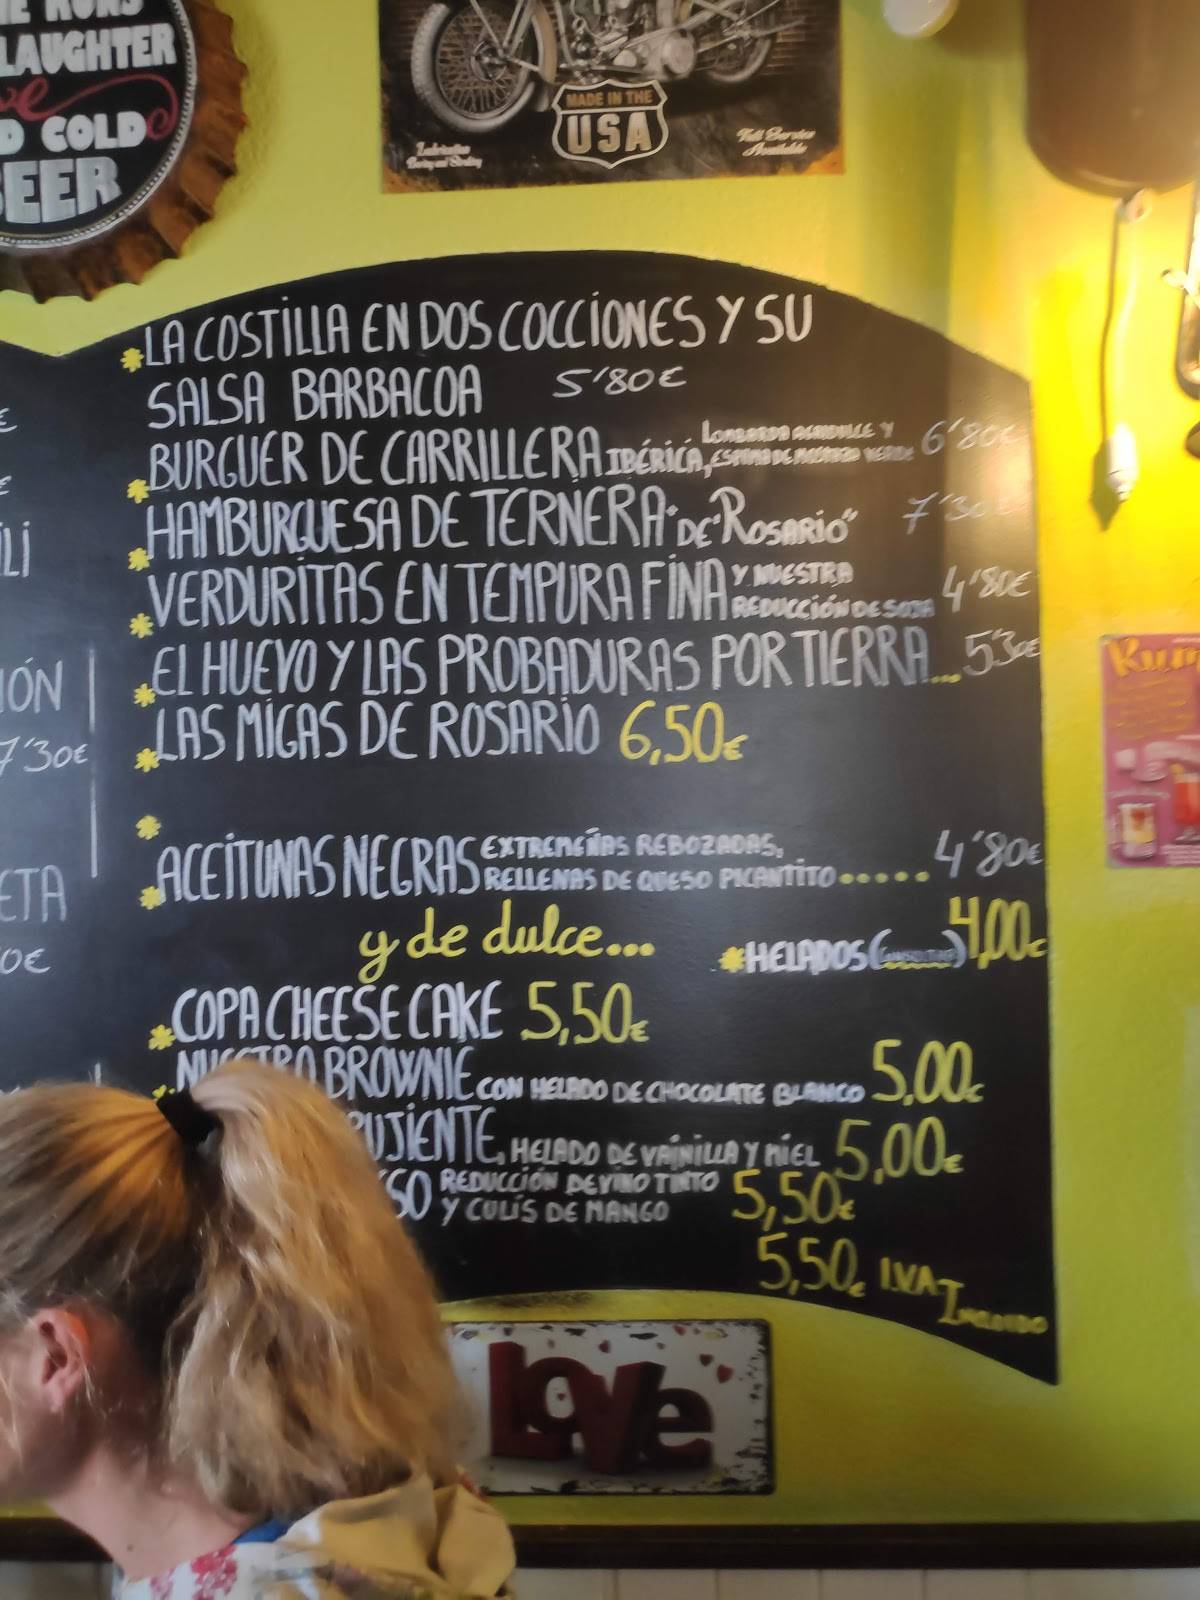 LAUGHTER
COLD
BEER
MADE IN THE
USA
Full Service
Available
LA COSTILLA EN DOS COCCIONES Y SU
SALSA BARBACOA 5'80€
BURGUER DE CARRILLERA IBÉRICA, LOMBARDA AGRIDULCE Y 6'80€
ESPUMA DE MOSTAZA VERDE
HAMBURGUESA DE TERNERA "DE "ROSARIO" 7'30€
VERDURITAS EN TEMPURA FINA Y NUESTRA
REDUCCIÓN DE SOJA 4'80€
EL HUEVO Y LAS PROBADURAS POR TIERRA... 5'30€
LAS MIGAS DE ROSARIO 6,50€
ACEITUNAS NEGRAS EXTREMEÑAS REBOZADAS,
RELLENAS DE QUESO PICANTITO..... 4'80€
y de dulce...
HELADOS (CONSULTAR) 4,00€
COPA CHEESE CAKE 5,50€
NUESTRO BROWNIE CON HELADO DE CHOCOLATE BLANCO 5,00€
UJIENTE, HELADO DE VAINILLA Y MIEL 5,00€
SO REDUCCIÓN DE VINO TINTO
Y CULÍS DE MANGO 5,50€
5,50€ I.V.A. INCLUIDO
LI
IÓN
7'30€
ETA
0€
Love